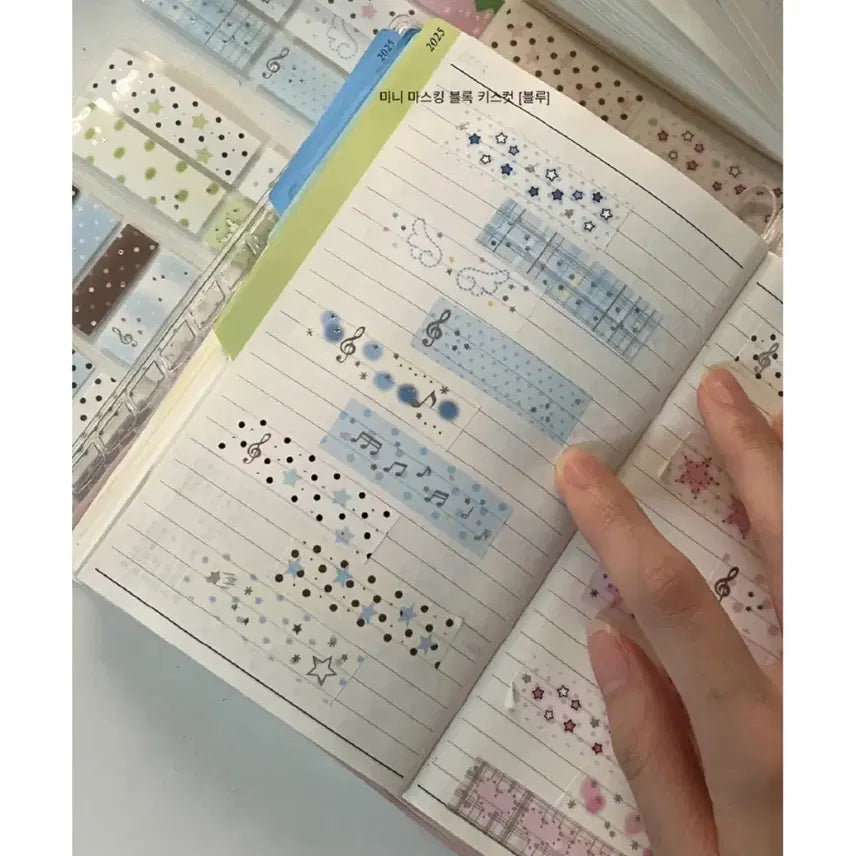 2025
2025
미니 마스킹 블록 키스컷 [블루]